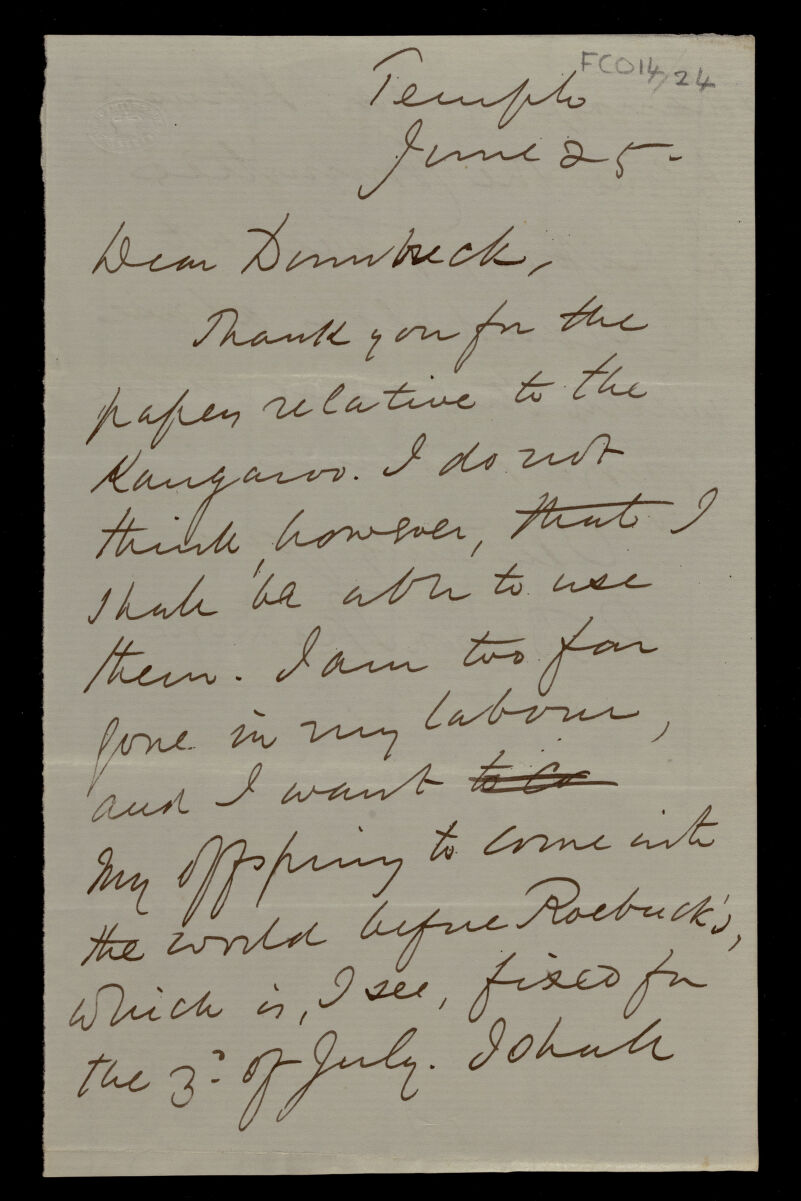 FCO14/24
Temple
June 25.
Dear Dornbusch,
Thank you for the
papers relative to the
Kangaroo. I do not
think, however, that I
shall be able to use
them. I am too far
gone in my labour,
and I want to co
my offspring to come into
the world before Roebuck's,
which is, I see, fixed for
the 3d. of July. I shall